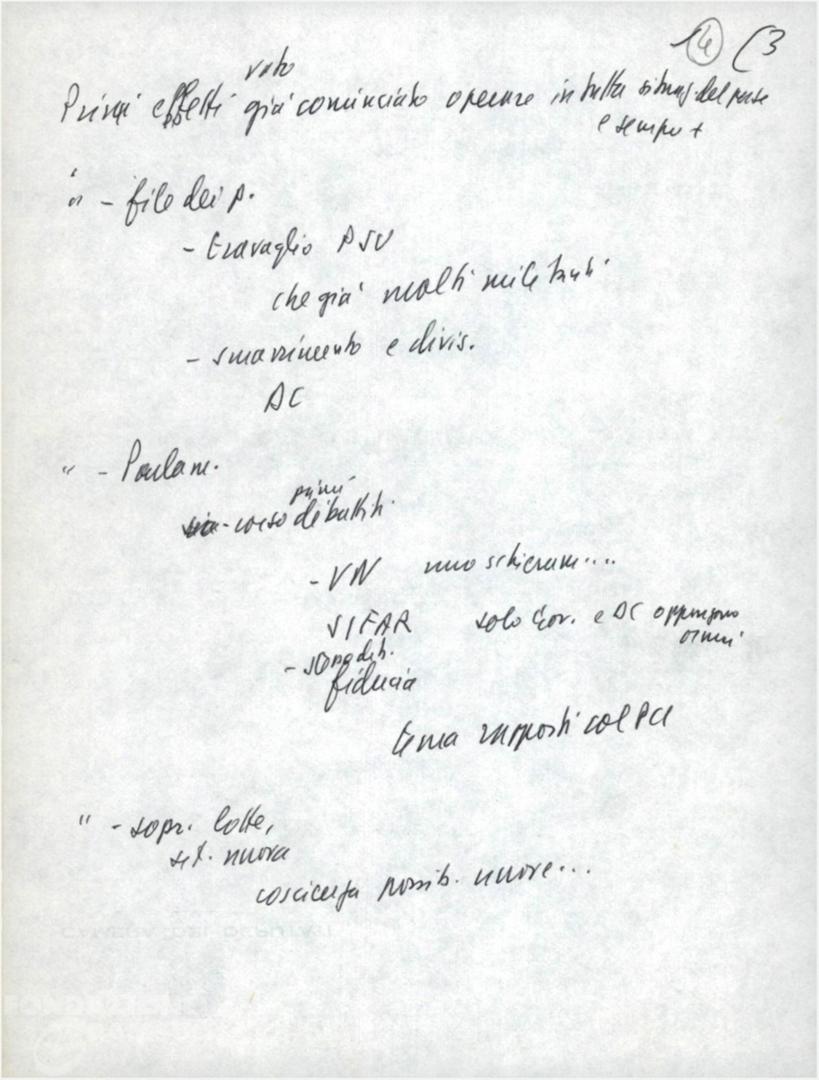 14 (3
voto
Primi effetti già cominciato operare in tutta situaz. del paese
e sempre +
" - file dei p.
- travaglio PSU
che già molti militanti
- smarrimento e divis.
DC
" - Parlam.
primi
corso dibattiti.
- VN nuo schieram....
SIFAR solo Gov. e DC oppongono
ormai
- dib.
fiducia
tema rapporti col PCI
" - sopr. lotte,
sit. nuova
coscienza possib. nuove...
CAMERA DEI DEPUTATI